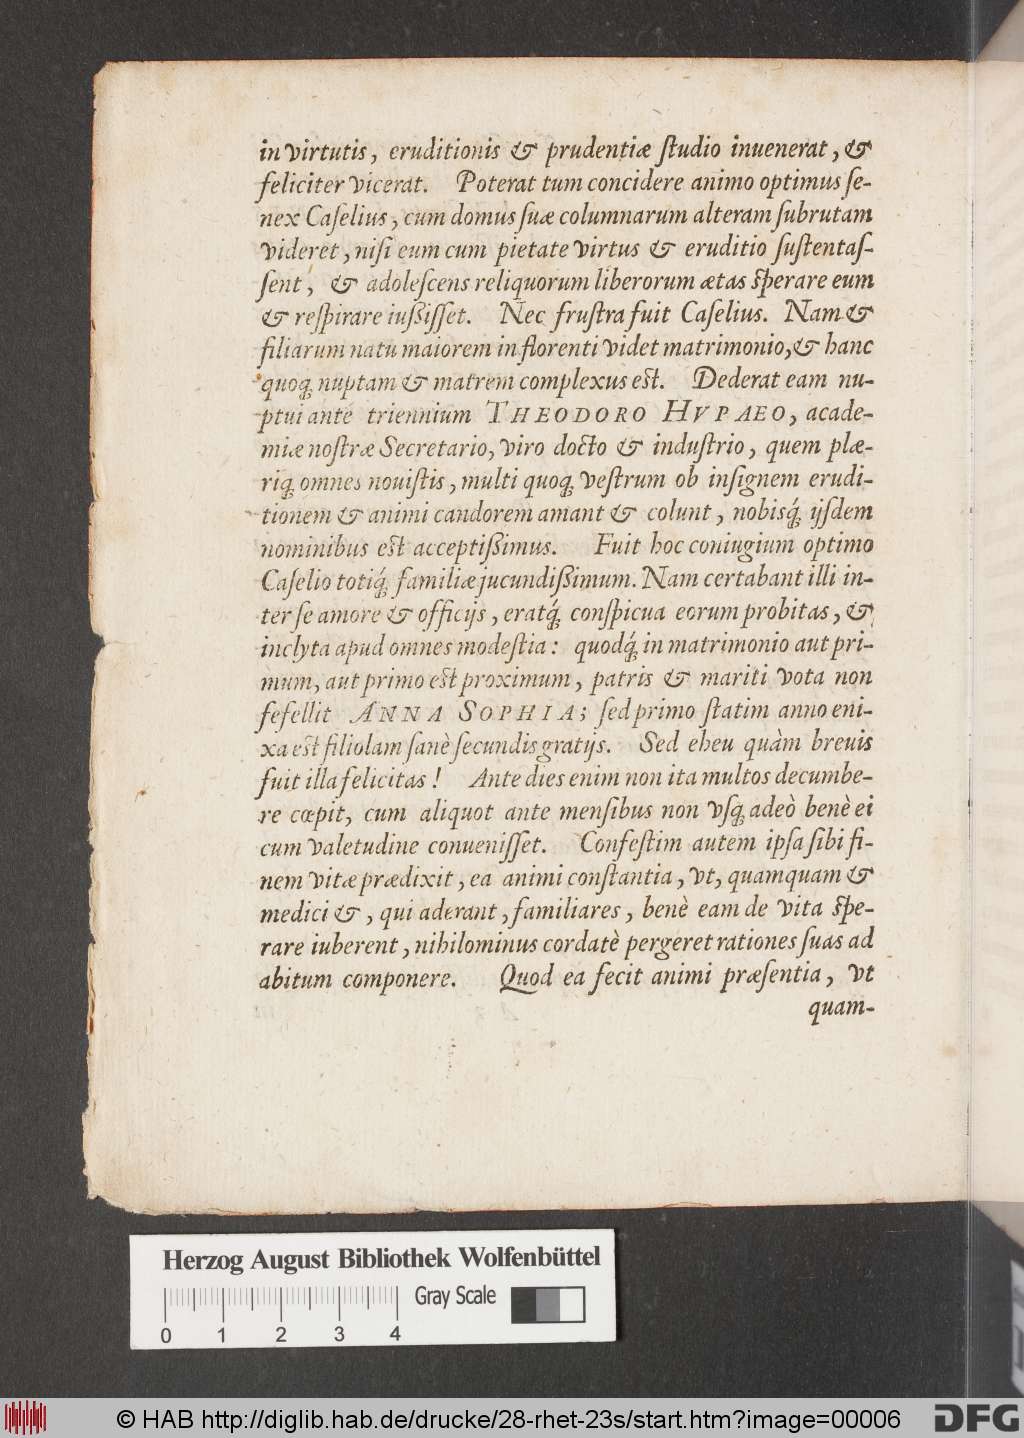 in virtutis, eruditionis & prudentiæ ſtudio inuenerat, &
feliciter vicerat. Poterat tum concidere animo optimus ſe-
nex Caſelius, cum domus ſuæ columnarum alteram ſubrutam
videret, niſi eum cum pietate virtus & eruditio ſuſtentaſ-
ſent, & adoleſcens reliquorum liberorum ætas ſperare eum
& reſpirare iuſsiſſet. Nec fruſtra fuit Caſelius. Nam &
filiarum natu maiorem in florenti videt matrimonio, & hanc
quoq; nuptam & matrem complexus eſt. Dederat eam nu-
ptui ante triennium THEODORO HVPAEO, acade-
miæ noſtræ Secretario, viro docto & induſtrio, quem plæ-
riq; omnes nouiſtis, multi quoq; veſtrum ob inſignem erudi-
tionem & animi candorem amant & colunt, nobisq́; ijſdem
nominibus eſt acceptiſsimus. Fuit hoc coniugium optimo
Caſelio totiq́; familiæ jucundiſsimum. Nam certabant illi in-
ter ſe amore & officijs, eratq́; conſpicua eorum probitas, &
inclyta apud omnes modeſtia: quodq́; in matrimonio aut pri-
mum, aut primo eſt proximum, patris & mariti vota non
fefellit ANNA SOPHIA; ſed primo ſtatim anno eni-
xa eſt filiolam ſanè ſecundis gratijs. Sed eheu quàm breuis
fuit illa felicitas! Ante dies enim non ita multos decumbe-
re cœpit, cum aliquot ante menſibus non vſq; adeò benè ei
cum valetudine conueniſſet. Confeſtim autem ipſa ſibi fi-
nem vitæ prædixit, ea animi conſtantia, vt, quamquam &
medici &, qui aderant, familiares, benè eam de vita ſpe-
rare iuberent, nihilominus cordatè pergeret rationes ſuas ad
abitum componere. Quod ea fecit animi præſentia, vt
quam-
Herzog August Bibliothek Wolfenbüttel
Gray Scale
0 1 2 3 4
© HAB http://diglib.hab.de/drucke/28-rhet-23s/start.htm?image=00006 DFG